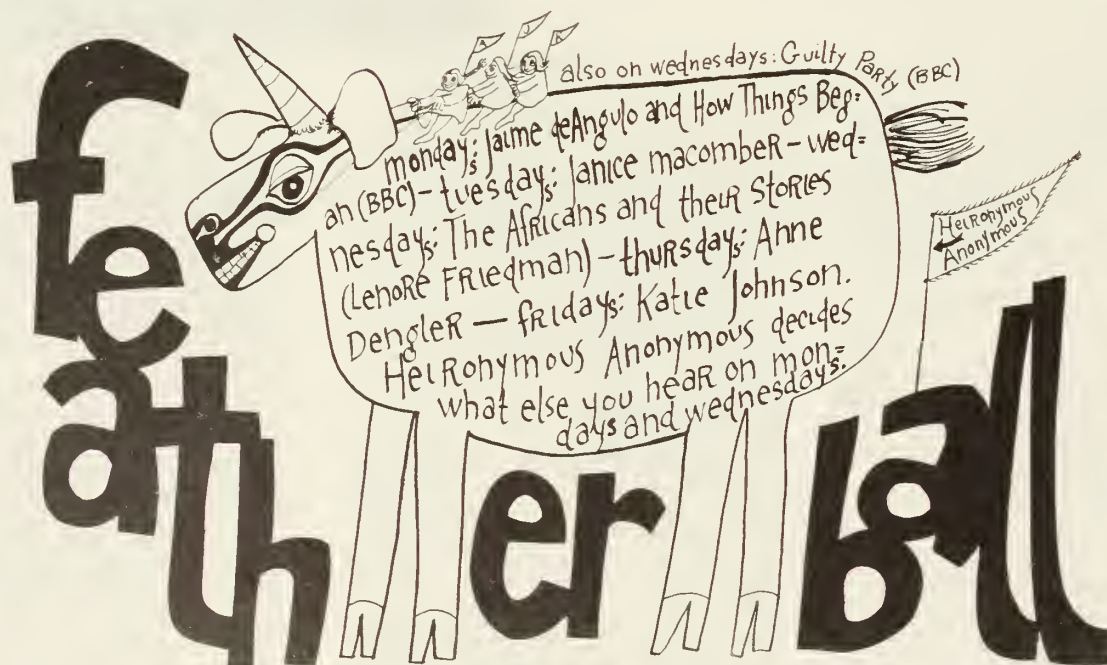 feather ball
A J K
also on wednesdays: Guilty Party (BBC)
mondays: Jaime deAngulo and How Things Beg=
an (BBC) – tuesdays: Janice macomber – wed=
nesdays: The Africans and their Stories
(Lenore Friedman) – thursdays: Anne
Dengler — fridays: Katie Johnson.
Heironymous Anonymous decides
what else you hear on mon=
days and wednesdays.
Heironymous
Anonymous